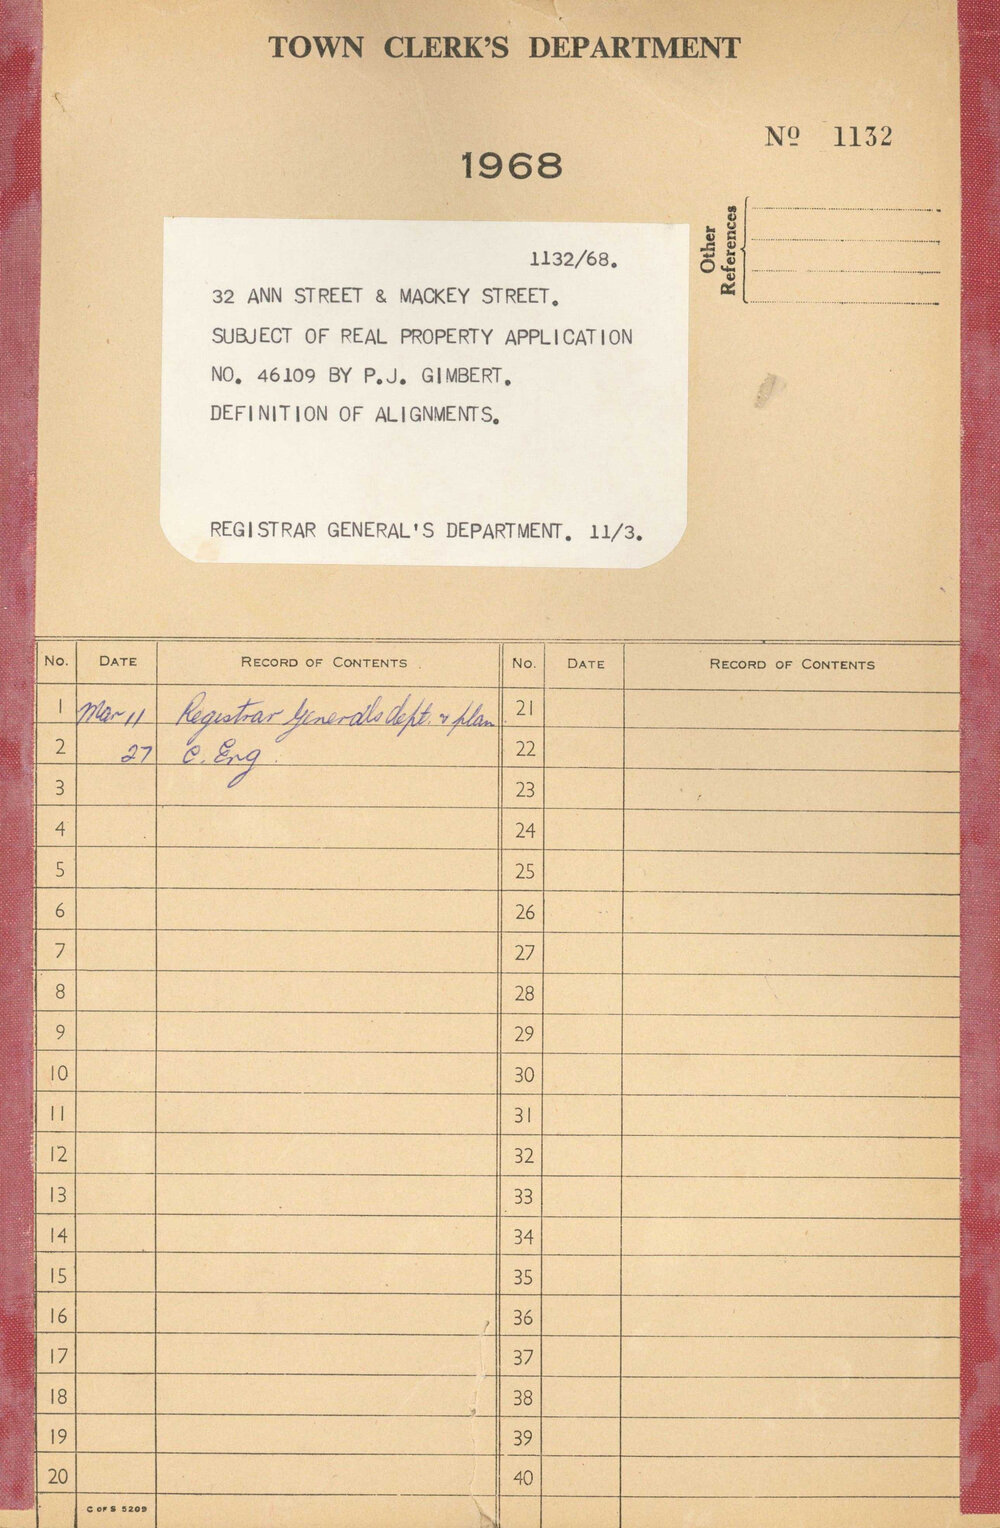 TOWN CLERK'S DEPARTMENT
Nº 1132
1968
Other
References
1132/68.
32 ANN STREET & MACKEY STREET.
SUBJECT OF REAL PROPERTY APPLICATION
NO. 46109 BY P.J. GIMBERT.
DEFINITION OF ALIGNMENTS.
REGISTRAR GENERAL'S DEPARTMENT. 11/3.
No. DATE RECORD OF CONTENTS No. DATE RECORD OF CONTENTS
1 Mar 11 Registrar General's dept. & plan 21
2 27 C. Eng. 22
3 23
4 24
5 25
6 26
7 27
8 28
9 29
10 30
11 31
12 32
13 33
14 34
15 35
16 36
17 37
18 38
19 39
20 40
C OF S 5209